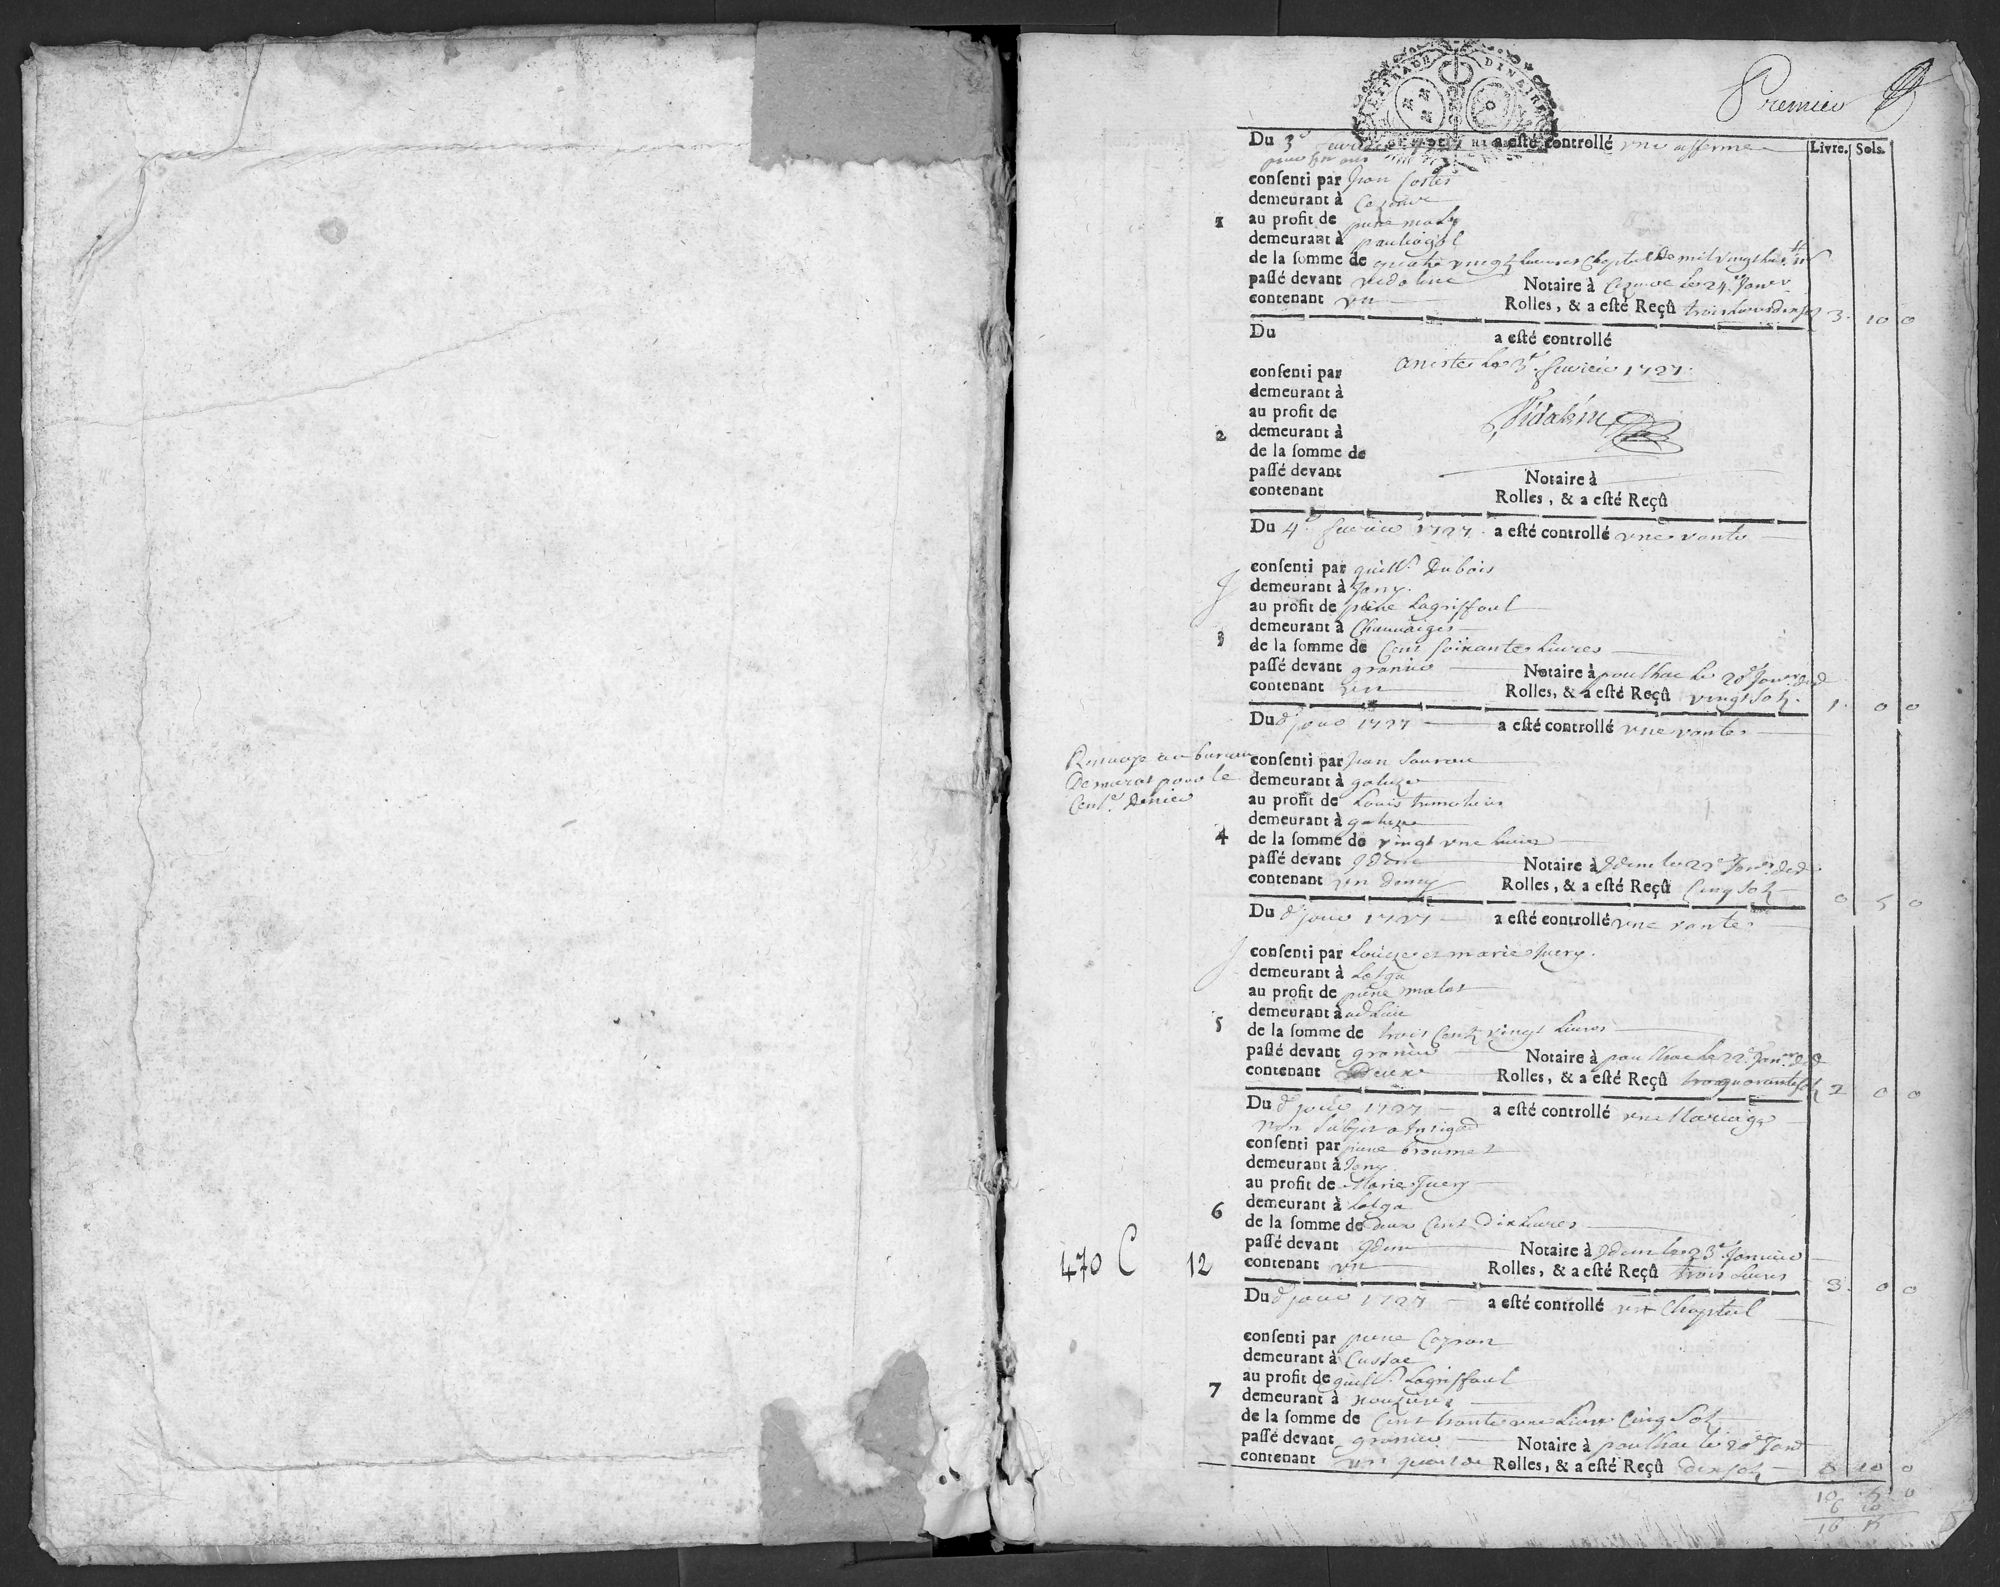 Premier
Livre. Sols.
Du 3e a esté controllé une afferme
pour six ans
consenti par Jean Costes
demeurant à
1 au profit de pierre
demeurant à pauliagol
de la somme de quatre vingt livres Cheptel de mil vingt huit
passé devant vidalenc Notaire à le 24e Janer
contenant un Rolles, & a esté Reçû trois livres dix sols 3 10 0
Du a esté controllé
arresté le 3e fevrier 1727.
consenti par
demeurant à
au profit de
2 demeurant à
de la somme de
Vidalenc
passé devant Notaire à
contenant Rolles, & a esté Reçû
Du 4e fevrier 1727 a esté controllé une vante
consenti par guill. Dubois
demeurant à Jony
au profit de pierre Lagriffoul
3 demeurant à Chauvaiges
de la somme de Cent soixante Livres
passé devant granier Notaire à paulhac le 20e Janer dud
contenant un Rolles, & a esté Reçû vingt sols. 1 0 0
Du d. jour 1727 a esté controllé une vante
Renvoye au bureau
De murat pour le
Cente. denier
consenti par Jean
demeurant à
au profit de Louis
demeurant à
4 de la somme de vingt une livres
passé devant Idem Notaire à Idem le 22e Janer dud
contenant un demy Rolles, & a esté Reçû Cinq sols 0 5 0
Du d. jour 1727 a esté controllé une vante
consenti par Louize et marie Juery.
demeurant à Lolga
au profit de pierre malet
demeurant à
5 de la somme de trois Cent vingt Livres
passé devant granier Notaire à paulhac le 22e Janer dud
contenant Deux Rolles, & a esté Reçû quarante sols 2 0 0
Du d. jour 1727 a esté controllé une Mariage
non subjet a
consenti par pierre broumet
demeurant à Jony
au profit de Marie Juery
6 demeurant à Lolga
de la somme de deux Cent Dix Livres
passé devant Idem Notaire à Idem le 23e Janvier
470 C 12 contenant un Rolles, & a esté Reçû trois livres 3 0 0
Du d. jour 1727 a esté controllé un Cheptel
consenti par pierre
demeurant à Cussac
au profit de guill. Lagriffoul
7 demeurant à
de la somme de Cent trante une Livre Cinq Sols
passé devant granier Notaire à paulhac le 20e Janv
contenant un quart de Rolles, & a esté Reçû dix sols 0 10 0
10 5 0
6 10
16 15